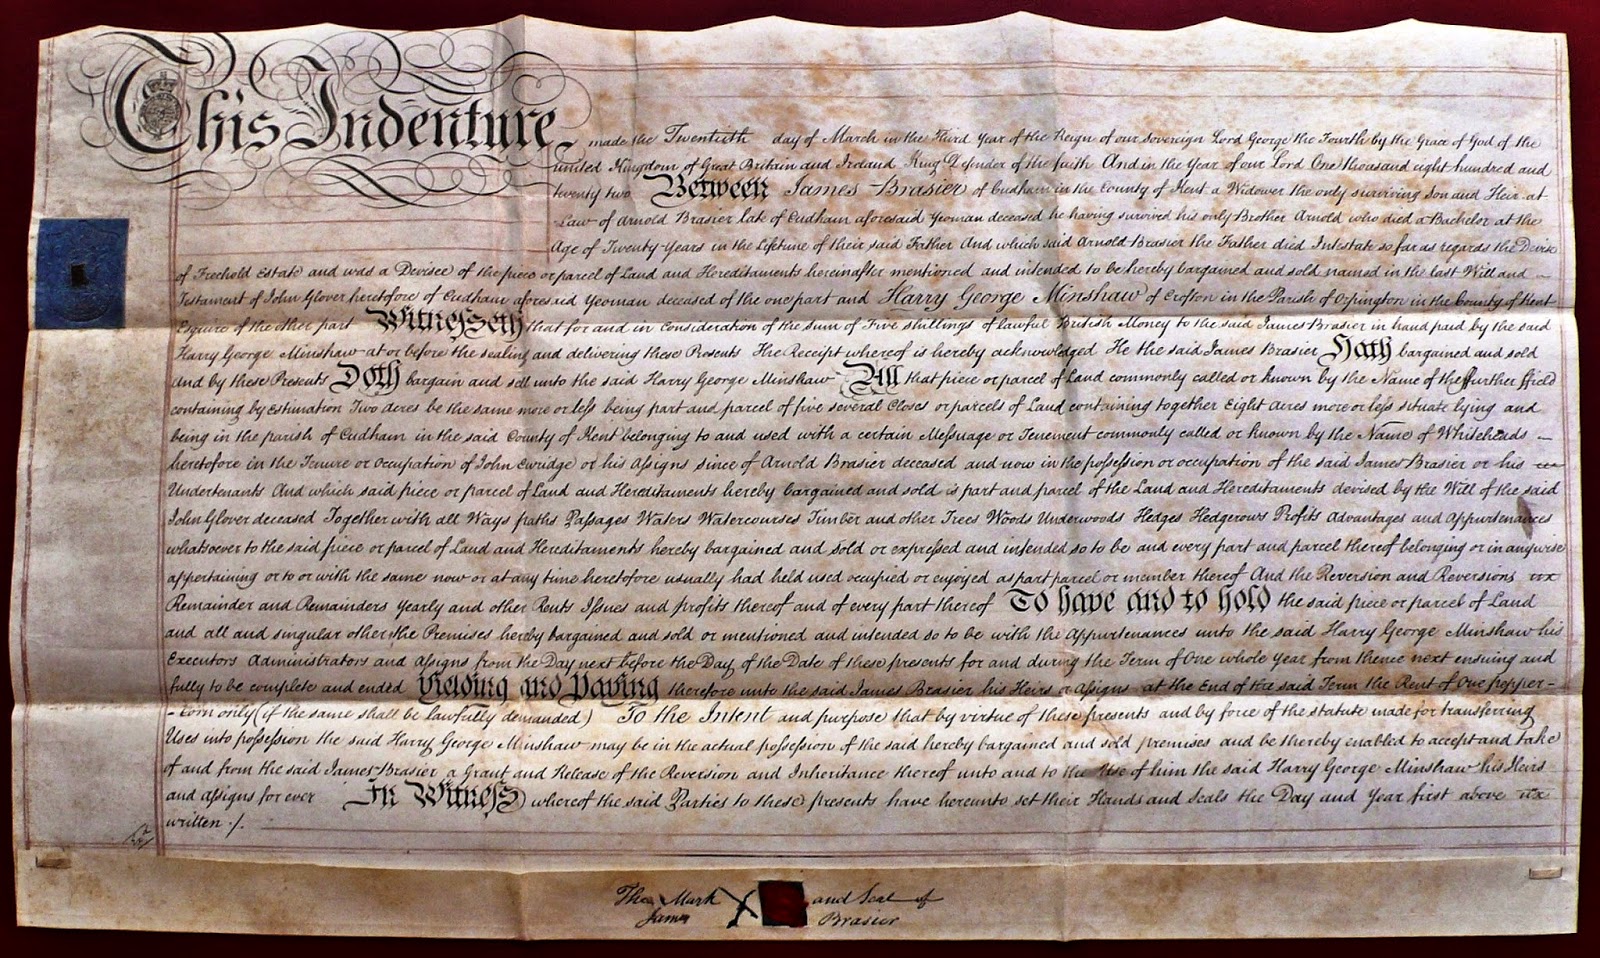 This Indenture, made the Twentieth day of March in the Third Year of the Reign of our Sovereign Lord George the Fourth by the Grace of God of the
united Kingdom of Great Britain and Ireland King Defender of the faith And in the Year of our Lord One thousand eight hundred and
twenty two Between James Brasier of Cudham in the County of Kent a Widower the only surviving Son and Heir at
Law of Arnold Brasier late of Cudham aforesaid Yeoman deceased he having survived his only Brother Arnold who died a Bachelor at the
Age of Twenty Years in the Lifetime of their said Father And which said Arnold Brasier the Father died Intestate so far as regards the Devise
of Freehold Estate and was a Devisee of the piece or parcel of Land and Hereditaments hereinafter mentioned and intended to be hereby bargained and sold named in the last Will and
Testament of John Glover heretofore of Cudham aforesaid Yeoman deceased of the one part and Harry George Minshaw of Crofton in the Parish of Orpington in the County of Kent
Esquire of the other part Witnesseth that for and in consideration of the sum of Five shillings of lawful British Money to the said James Brasier in hand paid by the said
Harry George Minshaw at or before the sealing and delivering these Presents The Receipt whereof is hereby acknowledged He the said James Brasier Hath bargained and sold
and by these Presents Doth bargain and sell unto the said Harry George Minshaw All that piece or parcel of Land commonly called or known by the Name of the further ffield
containing by Estimation Two Acres be the same more or less being part and parcel of five several Closes or parcels of Land containing together Eight Acres more or less situate lying and
being in the parish of Cudham in the said County of Kent belonging to and used with a certain Messuage or Tenement commonly called or known by the Name of Whiteheads
heretofore in the Tenure or Occupation of John Ewridge or his Assigns since of Arnold Brasier deceased and now in the possession or occupation of the said James Brasier or his
Undertenants And which said piece or parcel of Land and Hereditaments hereby bargained and sold is part and parcel of the Land and Hereditaments devised by the Will of the said
John Glover deceased Together with all Ways paths Passages Waters Watercourses Timber and other Trees Woods Underwoods Hedges Hedgerows Profits Advantages and Appurtenances
whatsoever to the said piece or parcel of Land and Hereditaments hereby bargained and sold or expressed and intended so to be and every part and parcel thereof belonging or in anywise
appertaining or to or with the same now or at any time heretofore usually had held used occupied or enjoyed as part parcel or member thereof And the Reversion and Reversions
Remainder and Remainders Yearly and other Rents Issues and profits thereof and of every part thereof To have and to hold the said piece or parcel of Land
and all and singular other the Premises hereby bargained and sold or mentioned and intended so to be with the Appurtenances unto the said Harry George Minshaw his
Executors Administrators and Assigns from the Day next before the Day of the Date of these presents for and during the Term of One whole Year from thence next ensuing and
fully to be complete and ended Yielding and Paying therefore unto the said James Brasier his Heirs or Assigns at the End of the said Term the Rent of One pepper-
-corn only (if the same shall be lawfully demanded) To the Intent and purpose that by virtue of these presents and by force of the statute made for transferring
Uses into possession the said Harry George Minshaw may be in the actual possession of the said hereby bargained and sold premises and be thereby enabled to accept and take
of and from the said James Brasier a Grant and Release of the Reversion and Inheritance thereof unto and to the Use of him the said Harry George Minshaw his Heirs
and assigns for ever In Witness whereof the said Parties to these presents have hereunto set their Hands and Seals the Day and Year first above
written ./.
The Mark X and Seal of
James Brasier